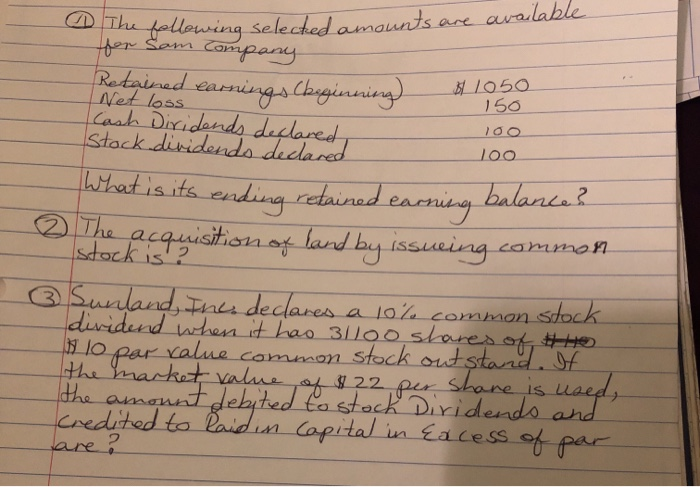 ① The following selected amounts are available
for Sam Company
Retained earnings (beginning) $ 1050
Net loss 150
Cash Dividends declared 100
Stock dividends declared 100
What is its ending retained earning balance?
② The acquisition of land by issueing common
stock is?
③ Sunland, Inc. declares a 10% common stock
dividend when it has 31100 shares of
$10 par value common stock outstand. If
the market value of $22 per share is used,
the amount debited to stock Dividends and
credited to Paid in Capital in Excess of par
are?